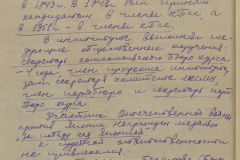 в 1943г. В 1948г. был принят
кандидатом в члены КПСС
а в 1951г - в члены КПСС.
В институте выполнял сле-
дующие общественные поручения:
секретарь комсомольского бюро курса,
член профкома института,
зам. секретаря комитета ВЛКСМ,
член партбюро и секретарь парт
бюро курса.
Участник Отечественной войны,
против Японии награжден медалью
"За победу над Японией".
К судебной ответственности
не привлекался.